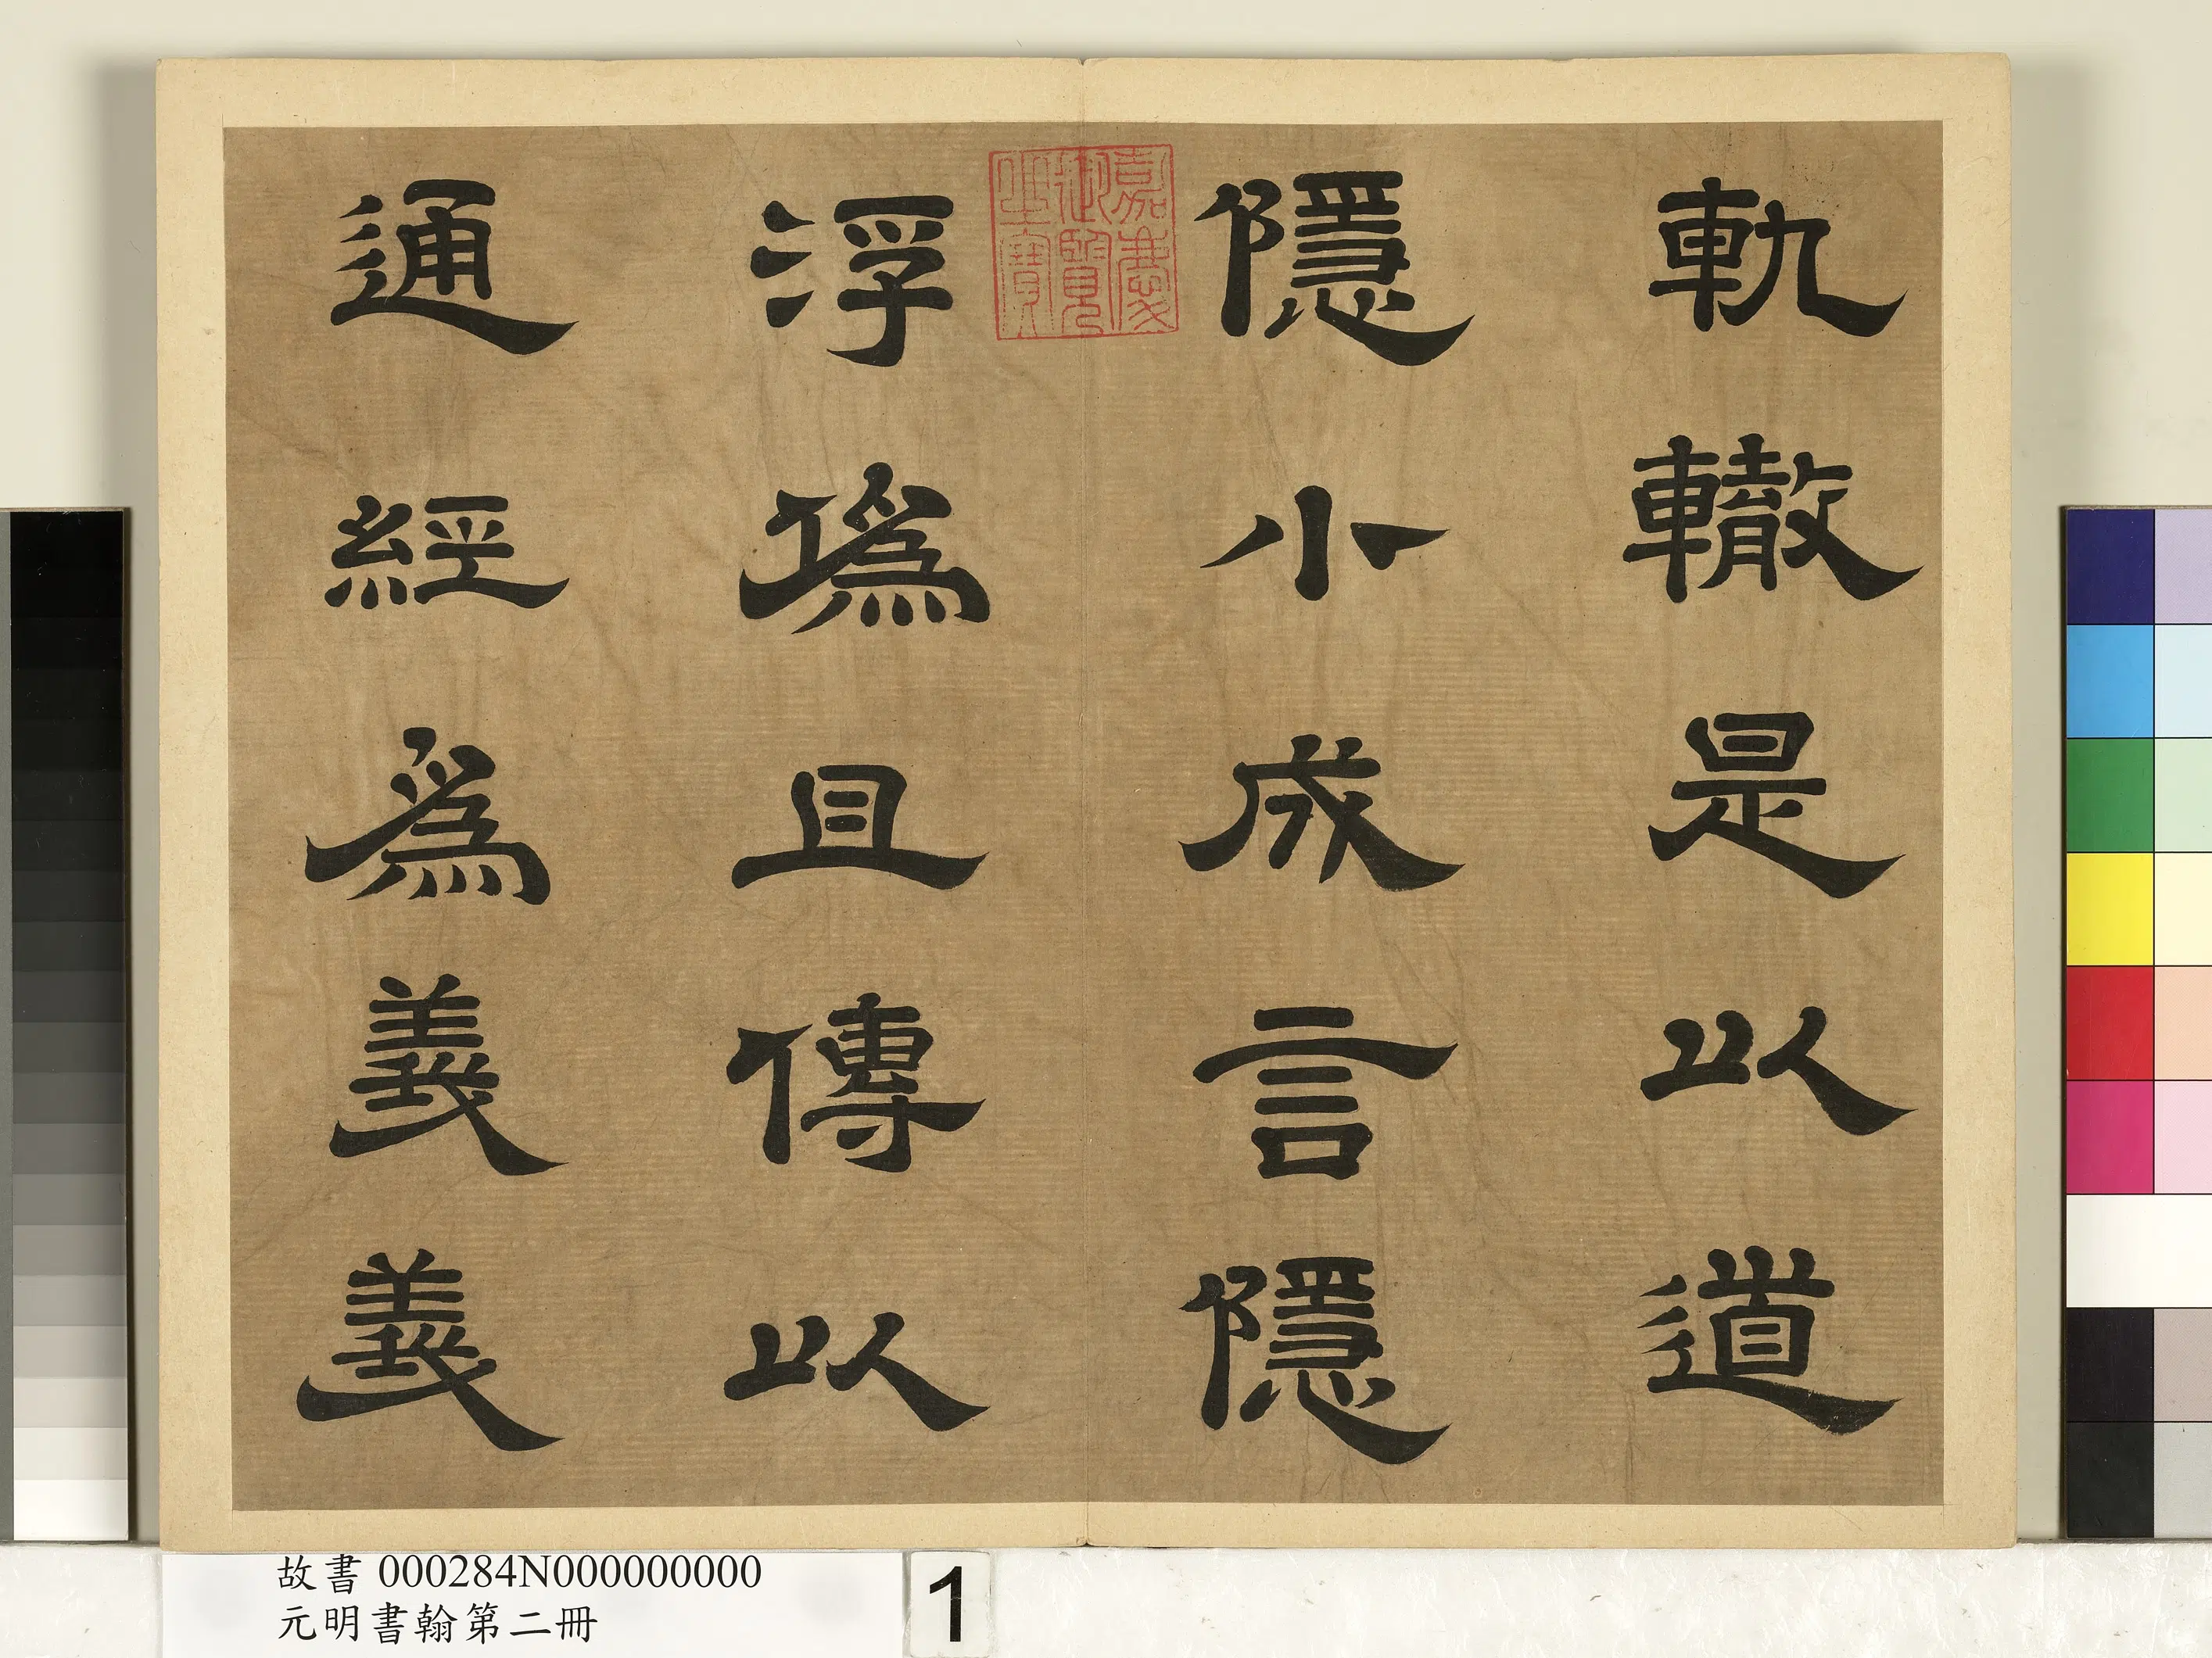 軌轍是以道
隱小成言隱
浮僞且傳以
通經爲義義
嘉慶
御覽
之寶
故書 000284N000000000
元明書翰第二冊
1